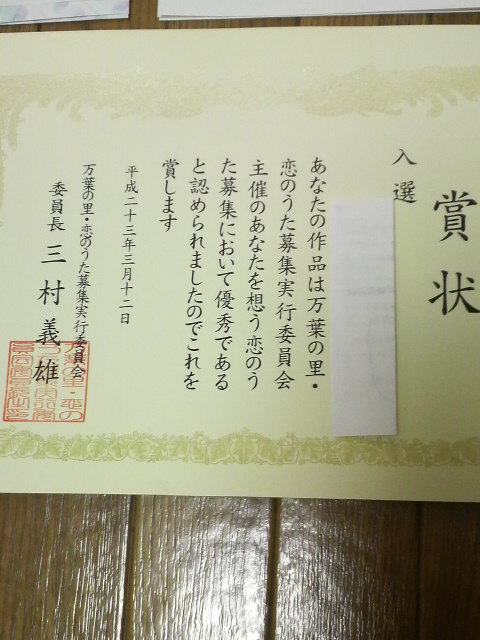 賞状
入選
あなたの作品は万葉の里・
恋のうた募集実行委員会
主催のあなたを想う恋のう
た募集において優秀である
と認められましたのでこれを
賞します
平成二十三年三月十二日
万葉の里・恋のうた募集実行委員会
委員長 三村義雄